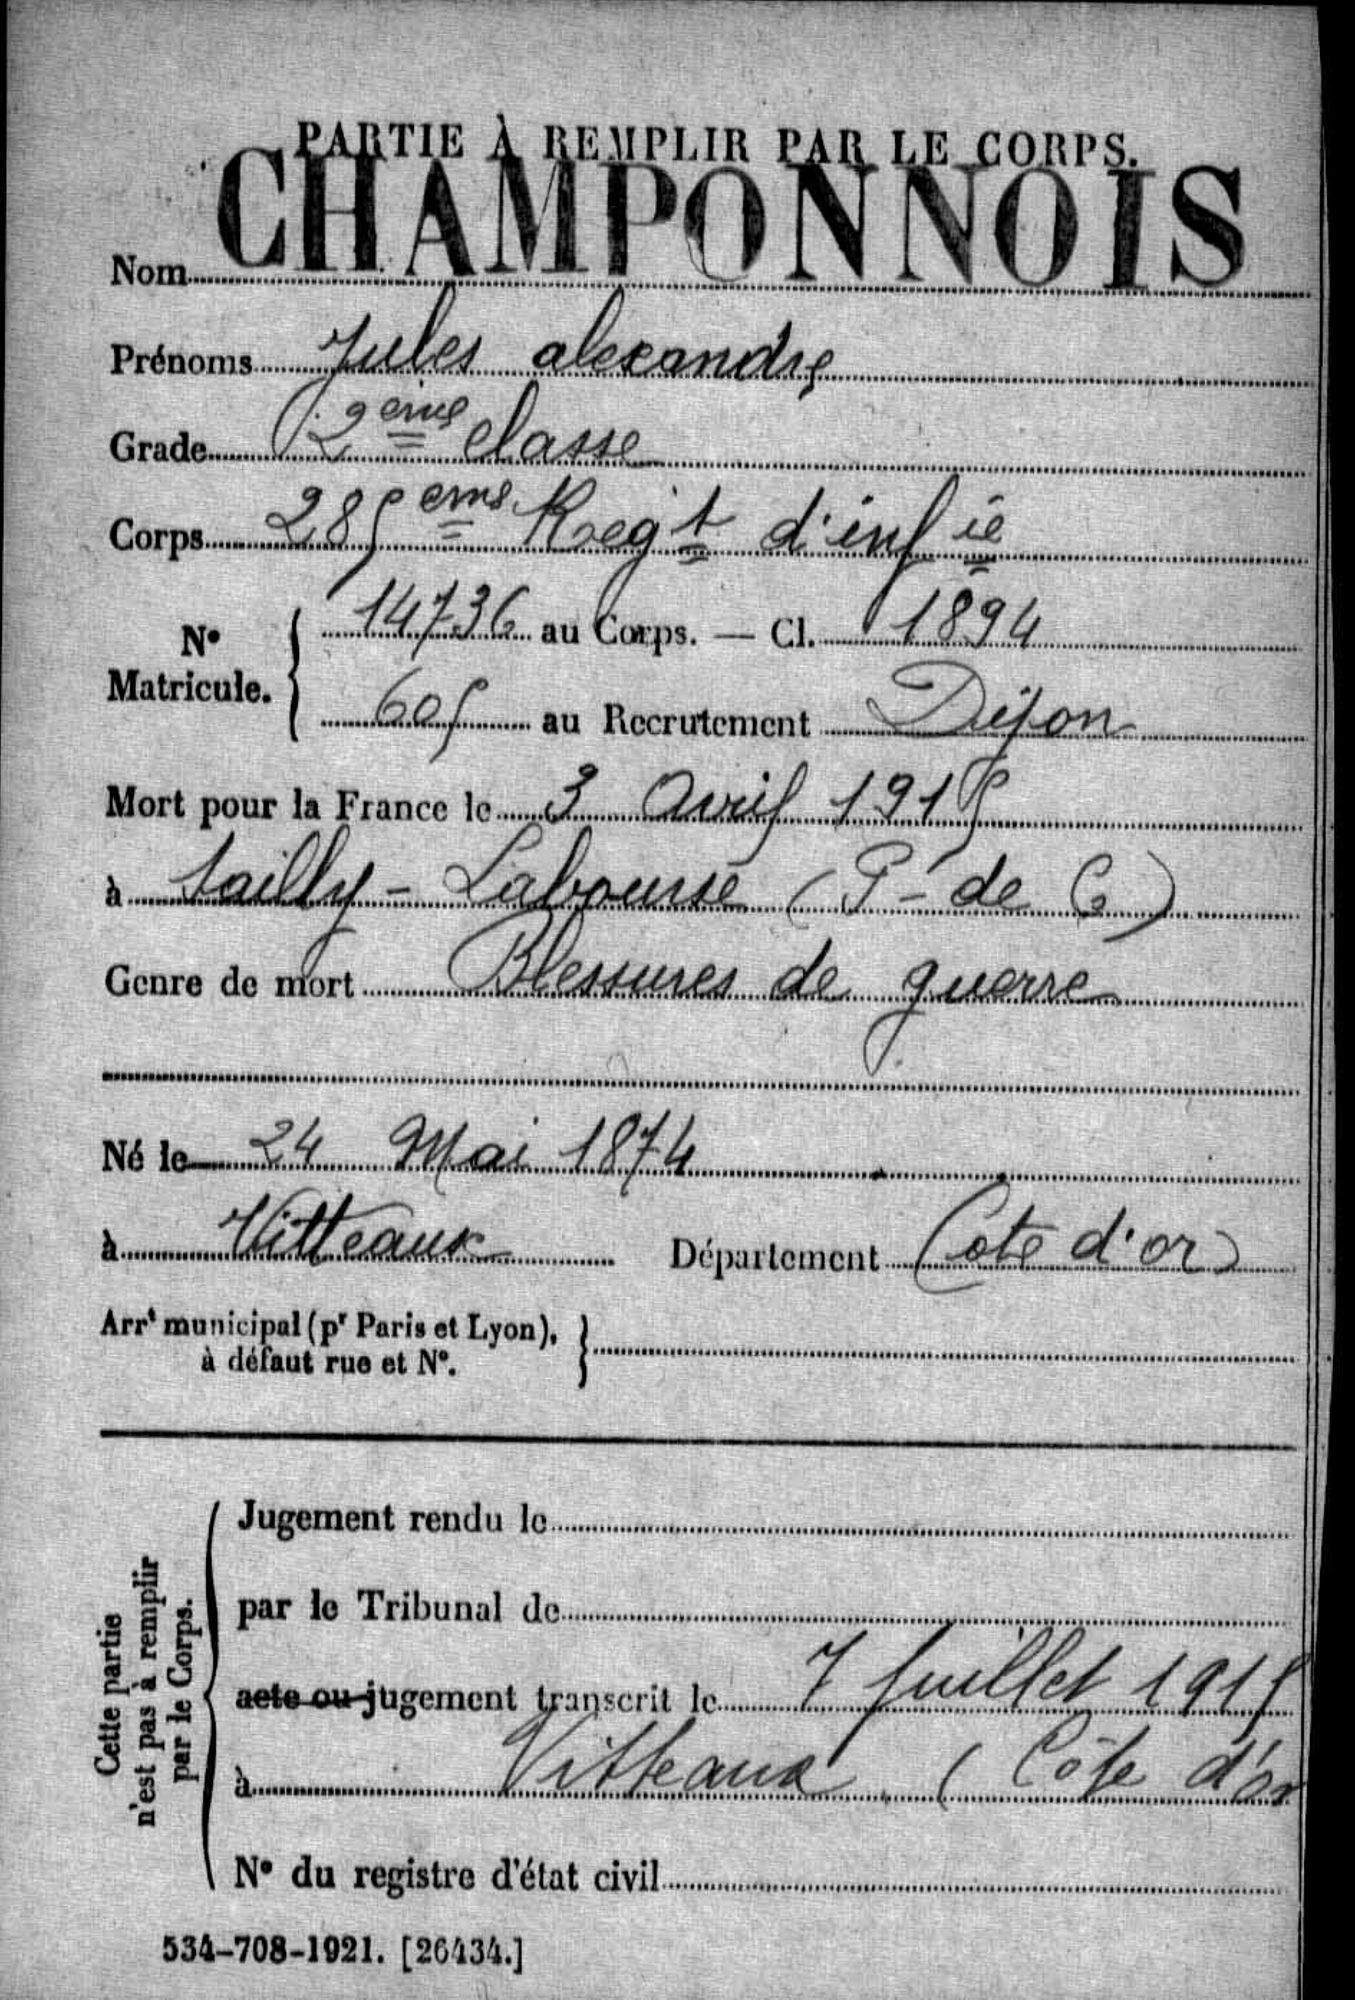 PARTIE À REMPLIR PAR LE CORPS.
Nom CHAMPONNOIS
Prénoms Jules alexandre
Grade 2ème classe
Corps 285ème Regt d'infie
No Matricule. 14736 au Corps. — Cl. 1894
605 au Recrutement Dijon
Mort pour la France le 3 Avril 1915
à Sailly-Labourse (P-de C)
Genre de mort Blessures de guerre
Né le 24 Mai 1874
à Vitteaux Département Cote d'or
Arrt municipal (pr Paris et Lyon),
à défaut rue et No.
Cette partie
n'est pas à remplir
par le Corps.
Jugement rendu le
par le Tribunal de
acte ou jugement transcrit le 7 Juillet 1915
à Vitteaux (Côte d'Or
No du registre d'état civil
534-708-1921. [26434.]